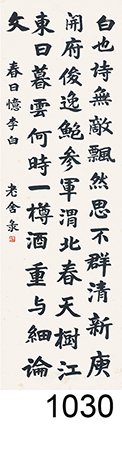 白也詩無敵飄然思不群清新庾
開府俊逸鮑参軍渭北春天樹江
東日暮雲何時一樽酒重与細論
文
春日憶李白
老舍
1030